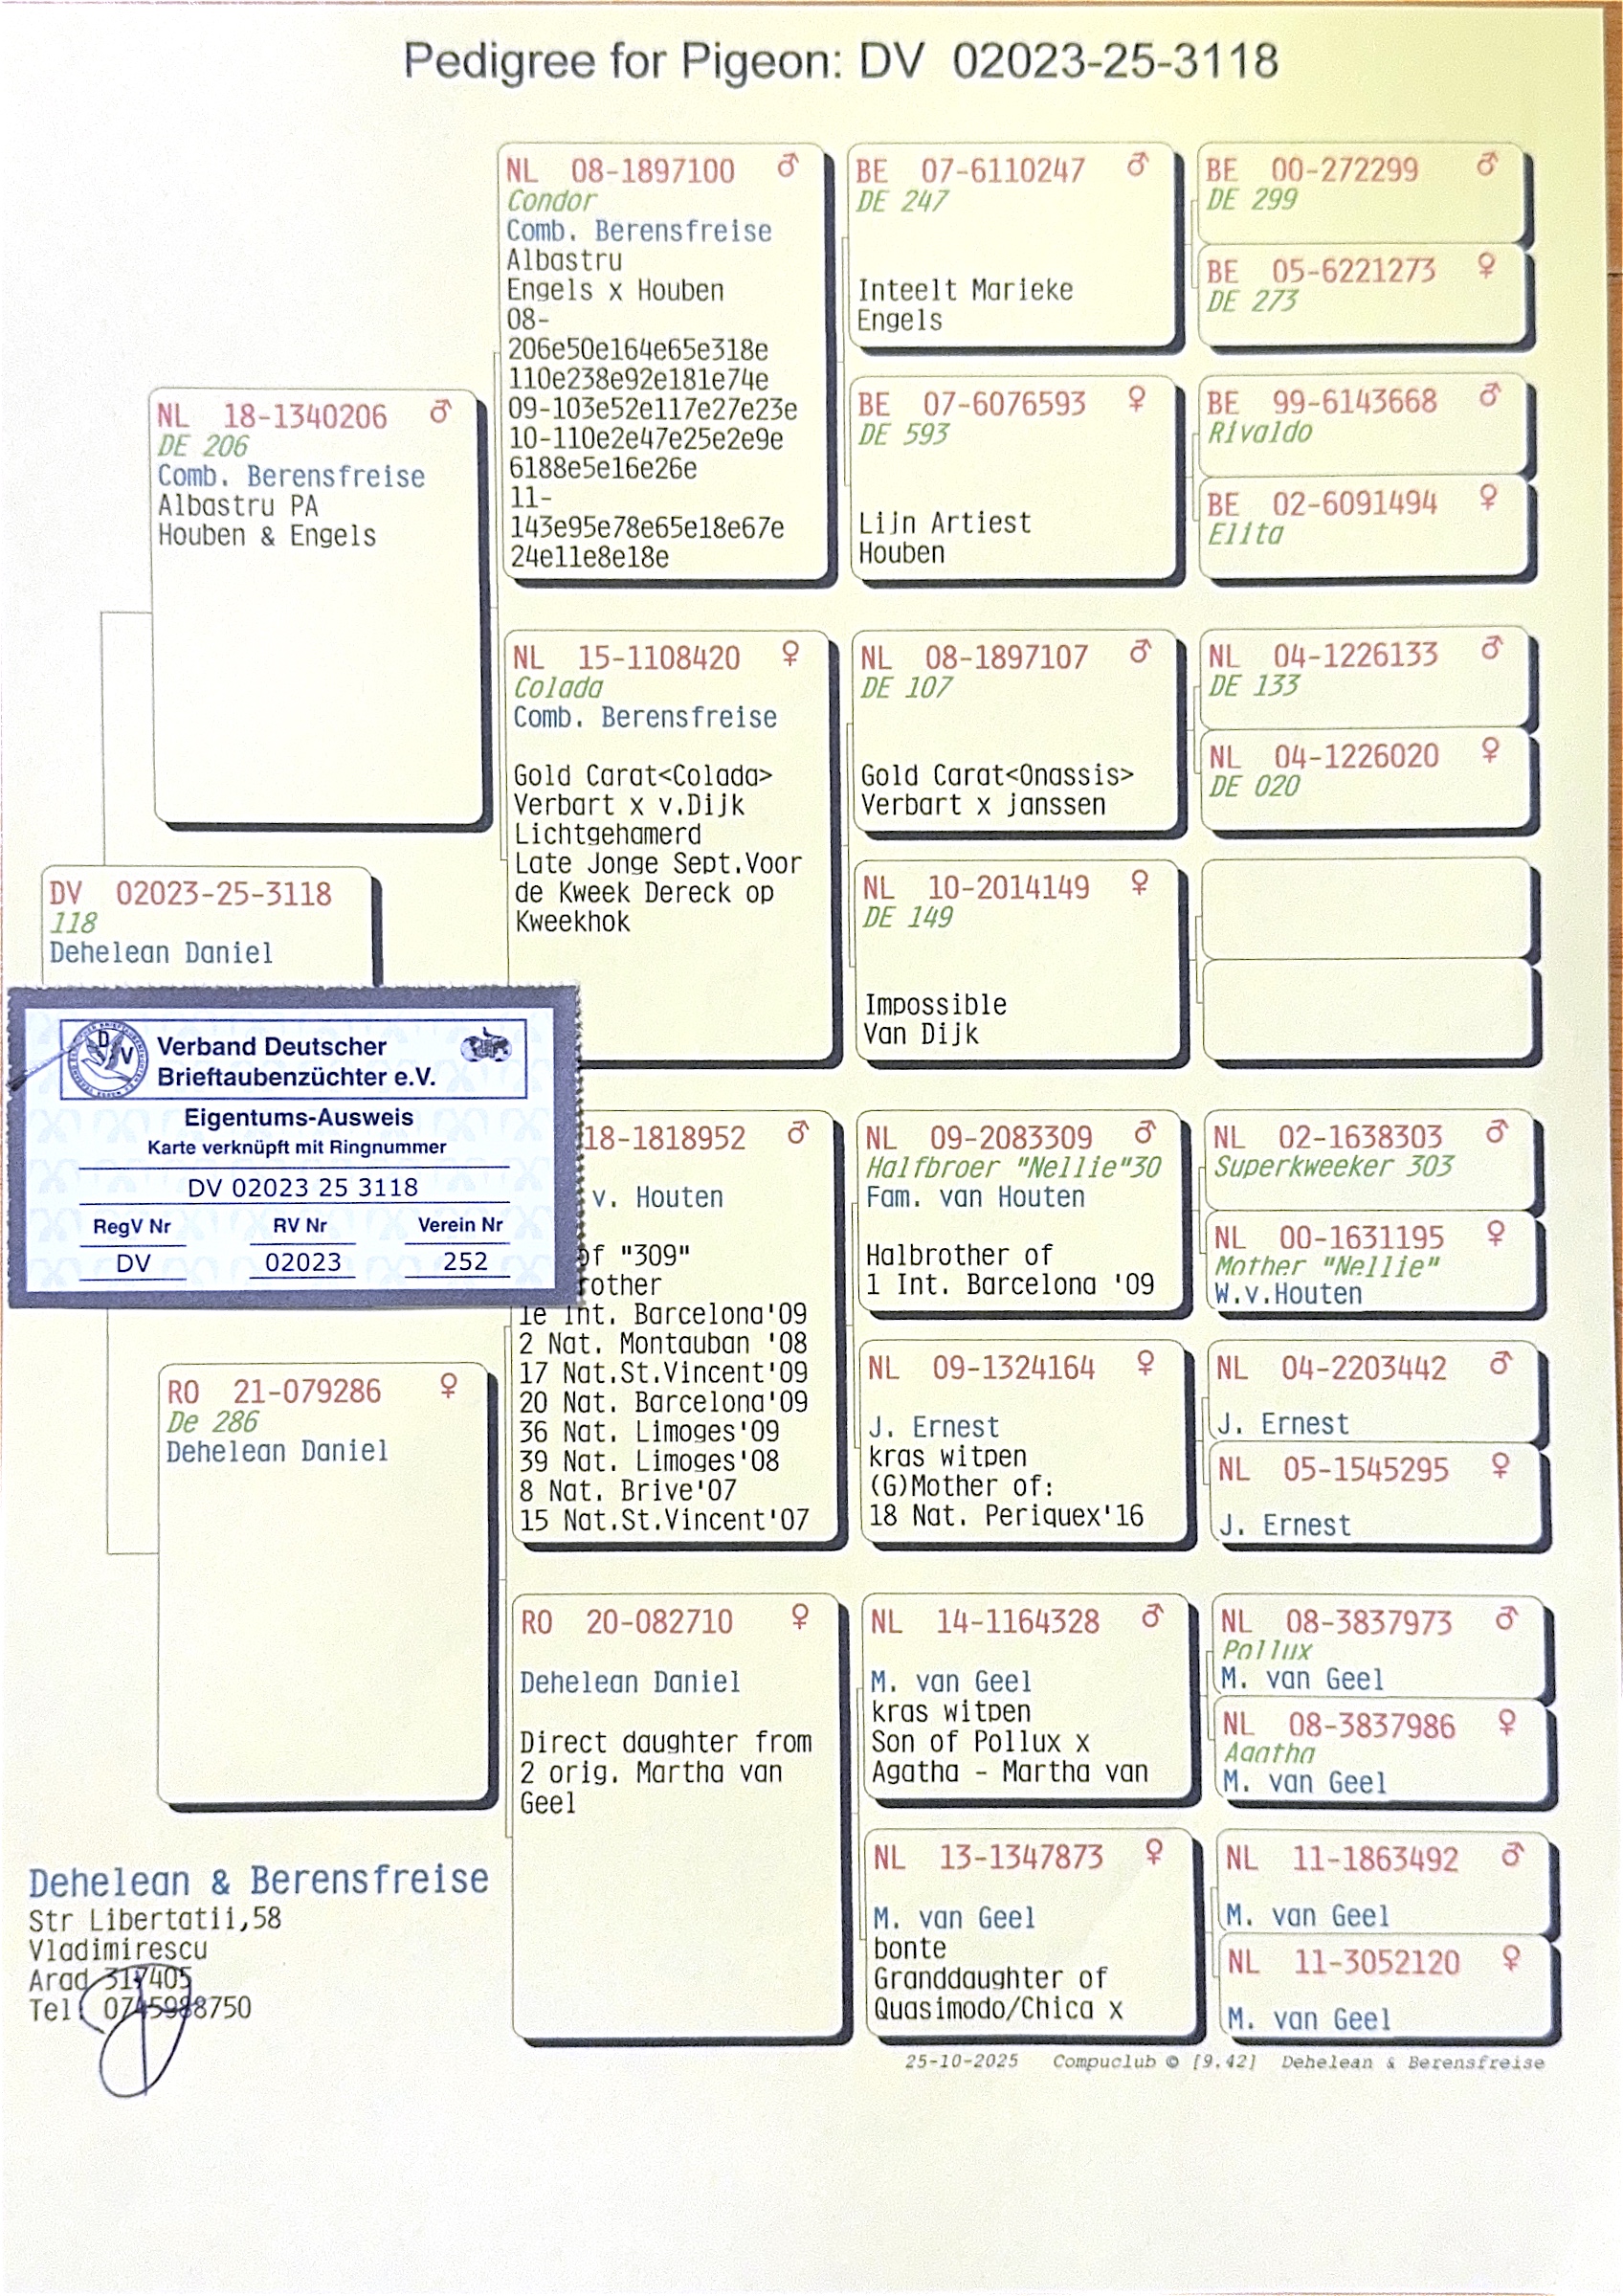 Pedigree for Pigeon: DV 02023-25-3118
DV 02023-25-3118
118
Dehelean Daniel
Verband Deutscher
Brieftaubenzüchter e.V.
Eigentums-Ausweis
Karte verknüpft mit Ringnummer
DV 02023 25 3118
RegV Nr RV Nr Verein Nr
DV 02023 252
NL 18-1340206 ♂
DE 206
Comb. Berensfreise
Albastru PA
Houben & Engels
RO 21-079286 ♀
De 286
Dehelean Daniel
NL 08-1897100 ♂
Condor
Comb. Berensfreise
Albastru
Engels x Houben
08-
206e50e164e65e318e
110e238e92e181e74e
09-103e52e117e27e23e
10-110e2e47e25e2e9e
6188e5e16e26e
11-
143e95e78e65e18e67e
24e11e8e18e
NL 15-1108420 ♀
Colada
Comb. Berensfreise
Gold Carat<Colada>
Verbart x v.Dijk
Lichtgehamerd
Late Jonge Sept.Voor
de Kweek Dereck op
Kweekhok
18-1818952 ♂
v. Houten
of "309"
rother
1e Int. Barcelona'09
2 Nat. Montauban '08
17 Nat.St.Vincent'09
20 Nat. Barcelona'09
36 Nat. Limoges'09
39 Nat. Limoges'08
8 Nat. Brive'07
15 Nat.St.Vincent'07
RO 20-082710 ♀
Dehelean Daniel
Direct daughter from
2 orig. Martha van
Geel
BE 07-6110247 ♂
DE 247
Inteelt Marieke
Engels
BE 07-6076593 ♀
DE 593
Lijn Artiest
Houben
NL 08-1897107 ♂
DE 107
Gold Carat<Onassis>
Verbart x janssen
NL 10-2014149 ♀
DE 149
Impossible
Van Dijk
NL 09-2083309 ♂
Halfbroer "Nellie"30
Fam. van Houten
Halbrother of
1 Int. Barcelona '09
NL 09-1324164 ♀
J. Ernest
kras witpen
(G)Mother of:
18 Nat. Periquex'16
NL 14-1164328 ♂
M. van Geel
kras witpen
Son of Pollux x
Agatha - Martha van
NL 13-1347873 ♀
M. van Geel
bonte
Granddaughter of
Quasimodo/Chica x
BE 00-272299 ♂
DE 299
BE 05-6221273 ♀
DE 273
BE 99-6143668 ♂
Rivaldo
BE 02-6091494 ♀
Elita
NL 04-1226133 ♂
DE 133
NL 04-1226020 ♀
DE 020
NL 02-1638303 ♂
Superkweeker 303
NL 00-1631195 ♀
Mother "Nellie"
W.v.Houten
NL 04-2203442 ♂
J. Ernest
NL 05-1545295 ♀
J. Ernest
NL 08-3837973 ♂
Pollux
M. van Geel
NL 08-3837986 ♀
Agatha
M. van Geel
NL 11-1863492 ♂
M. van Geel
NL 11-3052120 ♀
M. van Geel
Dehelean & Berensfreise
Str Libertatii,58
Vladimirescu
Arad 317405
Tel: 0745988750
25-10-2025 Compuclub © [9.42] Dehelean & Berensfreise